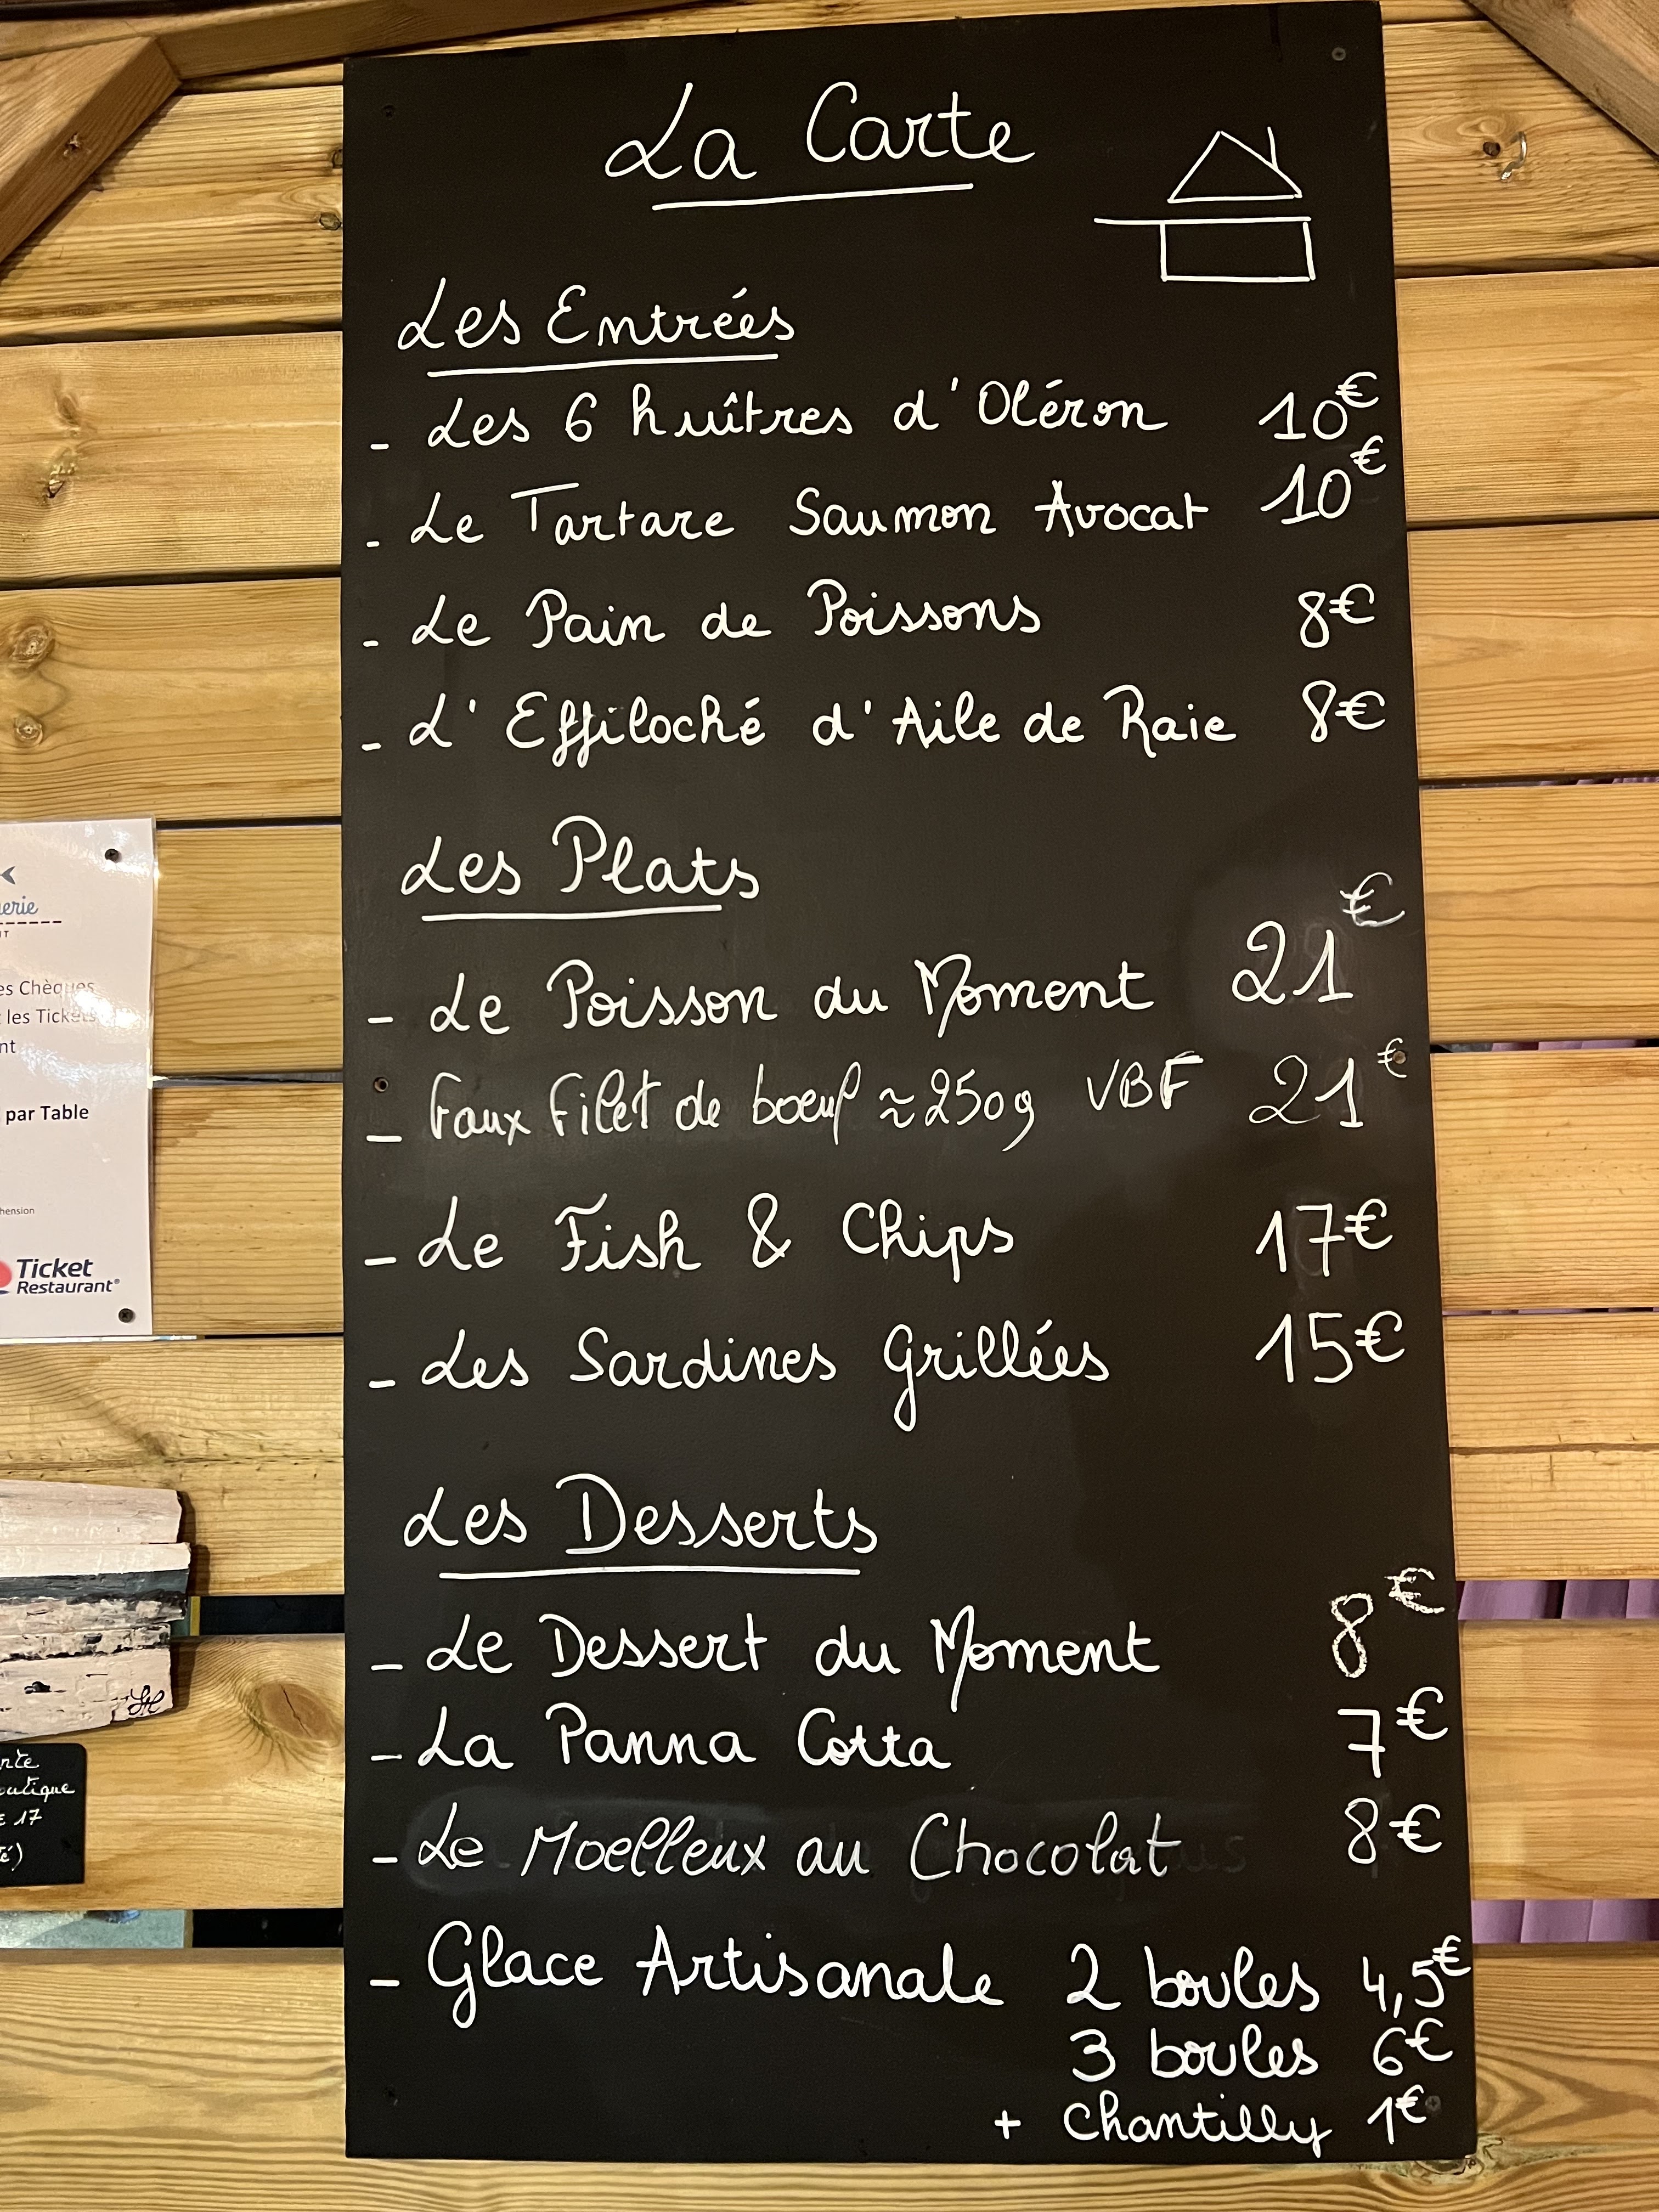 La Carte
Les Entrées
- Les 6 huîtres d'Oléron 10€
- Le Tartare Saumon Avocat 10€
- Le Pain de Poissons 8€
- L'Effiloché d'Aile de Raie 8€
Les Plats
- Le Poisson du Moment 21€
- Faux Filet de boeuf ≈250g VBF 21€
- Le Fish & Chips 17€
- Les Sardines Grillées 15€
Les Desserts
- Le Dessert du Moment 8€
- La Panna Cotta 7€
- Le Moelleux au Chocolat 8€
- Glace Artisanale 2 boules 4,5€
3 boules 6€
+ Chantilly 1€
es Chèques
les Tickets
nt
par Table
hension
Ticket
Restaurant®
17